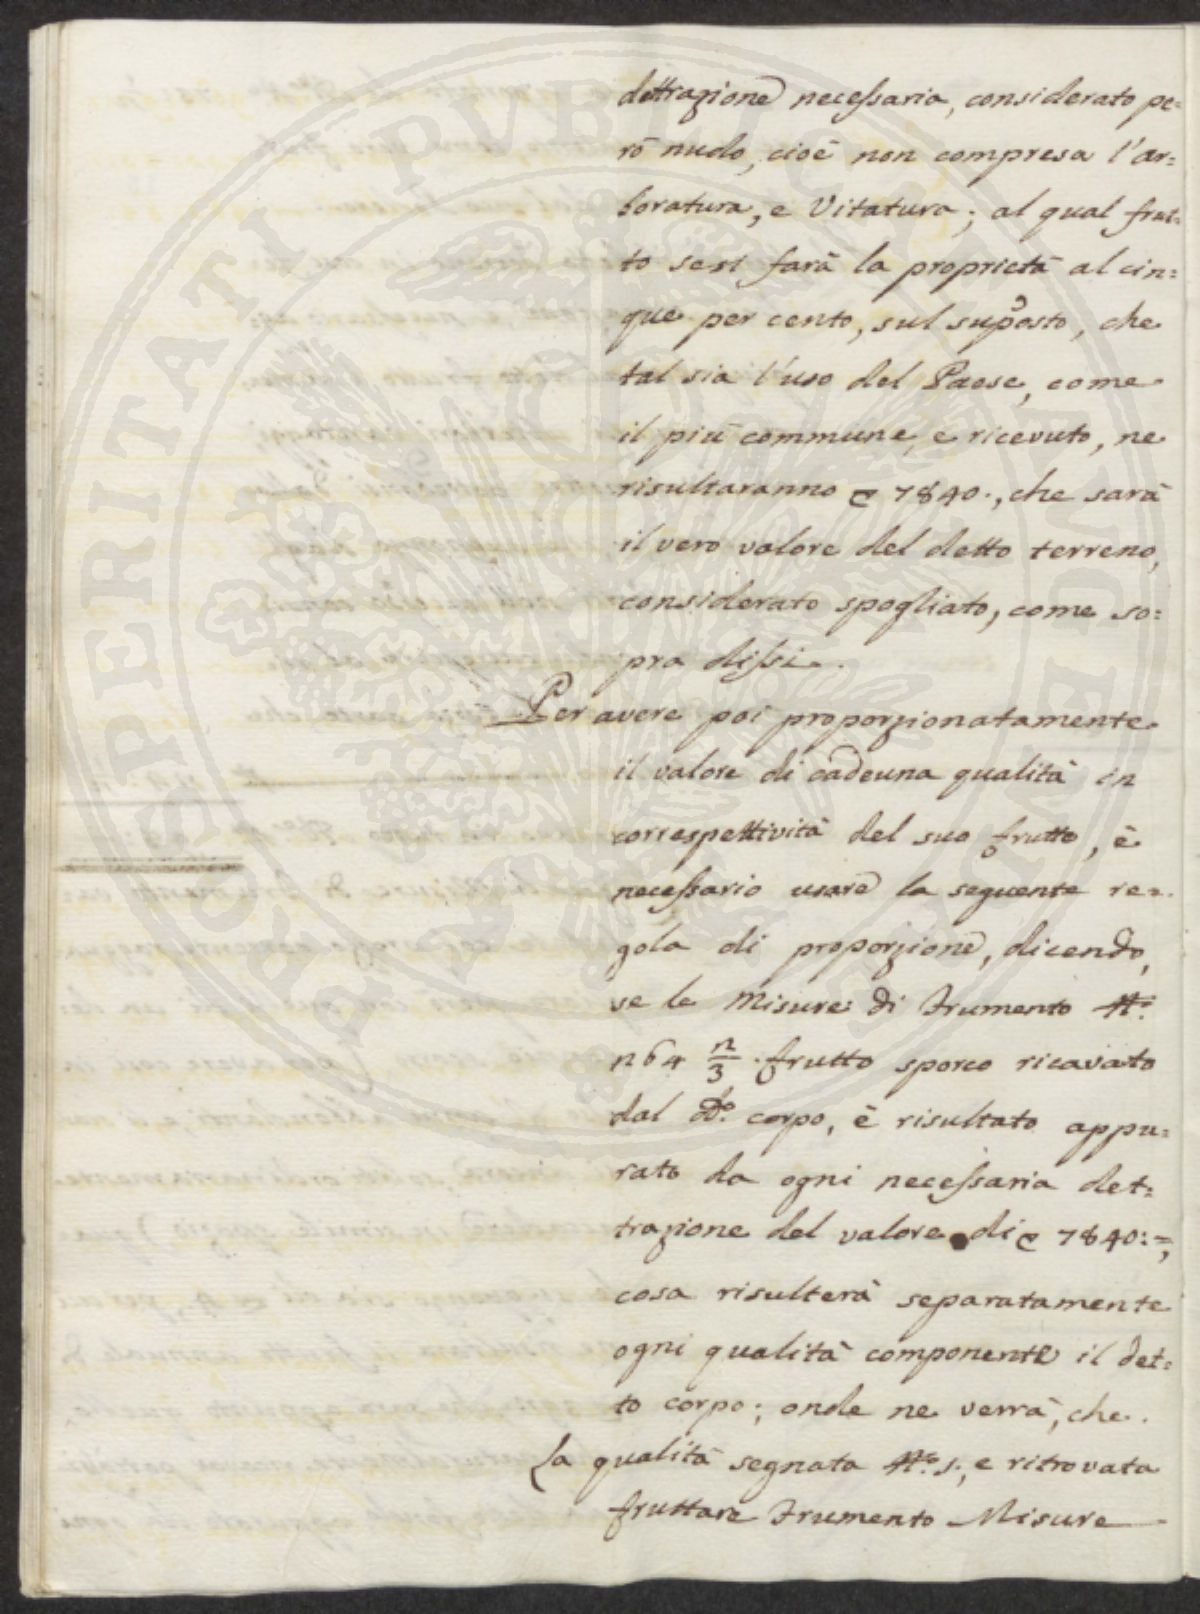 dettrazione necessaria, considerato pe=
rò nudo, cioè non compresa l'ar=
boratura, e Vitatura; al qual frut=
to se si farà la proprietà al cin=
que per cento, sul suposto, che
tal sia l'uso del Paese, come
il più commune, e ricevuto, ne
risultaranno 7840., che sarà
il vero valore del detto terreno,
considerato spogliato, come so=
pra dissi.
Per avere poi proporzionatamente
il valore di cadeuna qualità in
correspettività del suo frutto, è
necessario usare la seguente re=
gola di proporzione, dicendo,
se le Misure di Frumento N.°
frutto sporco ricavato
dal d.° corpo, è risultato appu=
rato da ogni necessaria det=
trazione del valore di 7840:=,
cosa risulterà separatamente
ogni qualità componente il det=
to corpo; onde ne verrà, che.
La qualità segnata N.°, e ritrovata
fruttare Frumento Misure
PROSPERITATI PUBLICAE AUGENDAE